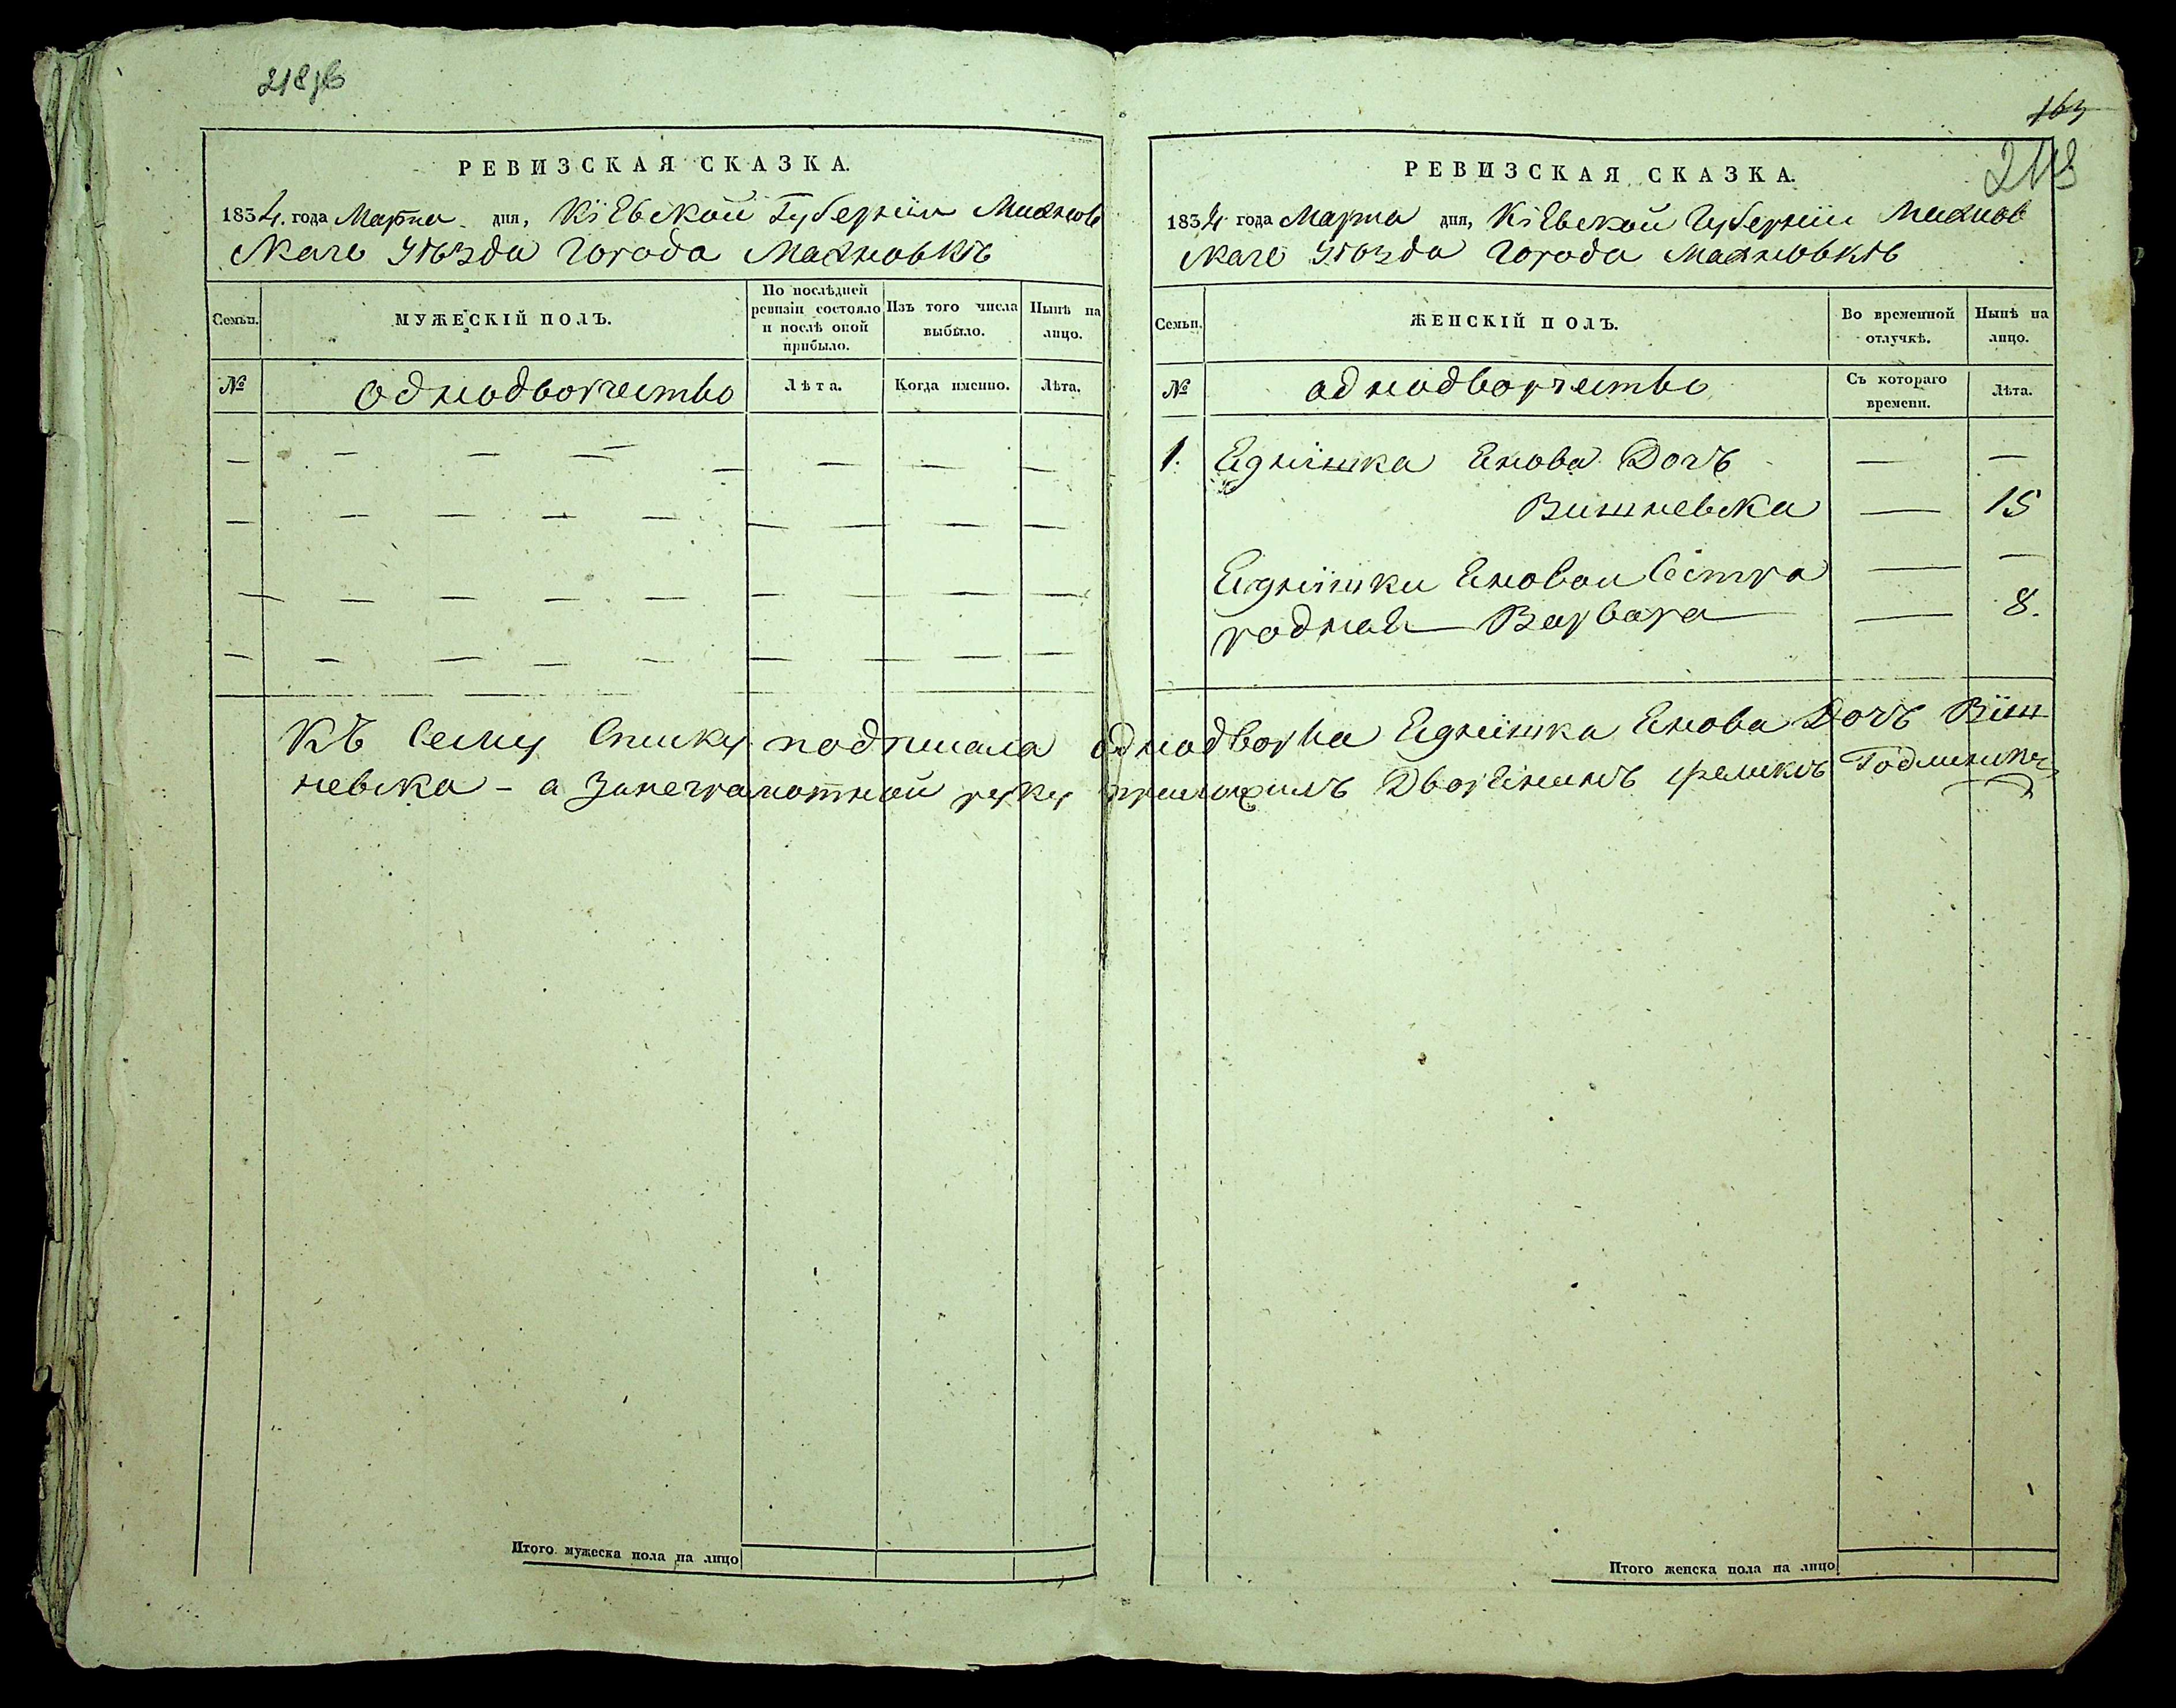 218 об
РЕВИЗСКАЯ СКАЗКА.
1834. года Марта дня, Кіевской Губерніи Махнов
скаго Уѣзда Города Махновкѣ
Семьи.
МУЖЕСКІЙ ПОЛЪ.
По послѣдней ревизіи состояло и послѣ оной прибыло.
Изъ того числа выбыло.
Нынѣ на лицо.
№
однодворчество
Лѣта.
Когда именно.
Лѣта.
Итого мужеска пола на лицо
163
РЕВИЗСКАЯ СКАЗКА.
1834 года Марта дня, Кіевской Губерніи Махнов
скаго Уѣзда Города Махновкѣ
Семьи.
ЖЕНСКІЙ ПОЛЪ.
Во временной отлучкѣ.
Нынѣ на лицо.
№
однодворчество
Съ котораго времени.
Лѣта.
1. Енова Дочъ
Вишневска 15
Еновои Сестра
родная Варвара 8.
Къ Сему Списку подписала однодворка Енова Дочъ Виш
невска - а Занеграмотной руку приложилъ Дворенинъ Феликсъ
Итого женска пола на лицо